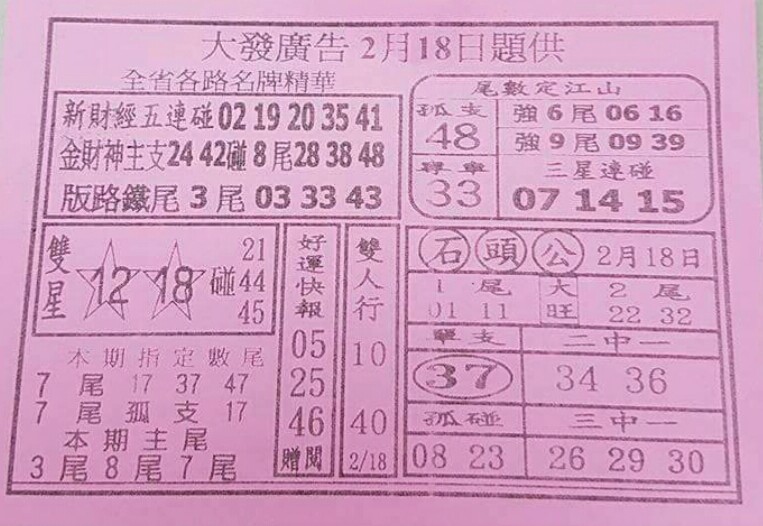 大發廣告 2月18日題供
全省各路名牌精華
新財經五連碰 02 19 20 35 41
金財神主支 24 42 碰 8 尾 28 38 48
版路鐵尾 3 尾 03 33 43
尾數定江山
孤支
48
強 6 尾 06 16
強 9 尾 09 39
專車
33
三星連碰
07 14 15
雙星
12 18 碰
21
44
45
本期指定數尾
7 尾 17 37 47
7 尾 孤支 17
本期主尾
3 尾 8 尾 7 尾
好運快報
05
25
46
贈閱
雙人行
10
40
2/18
石頭公 2月18日
1 尾
01 11
大旺
2 尾
22 32
單支
37
二中一
34 36
孤碰
08 23
三中一
26 29 30